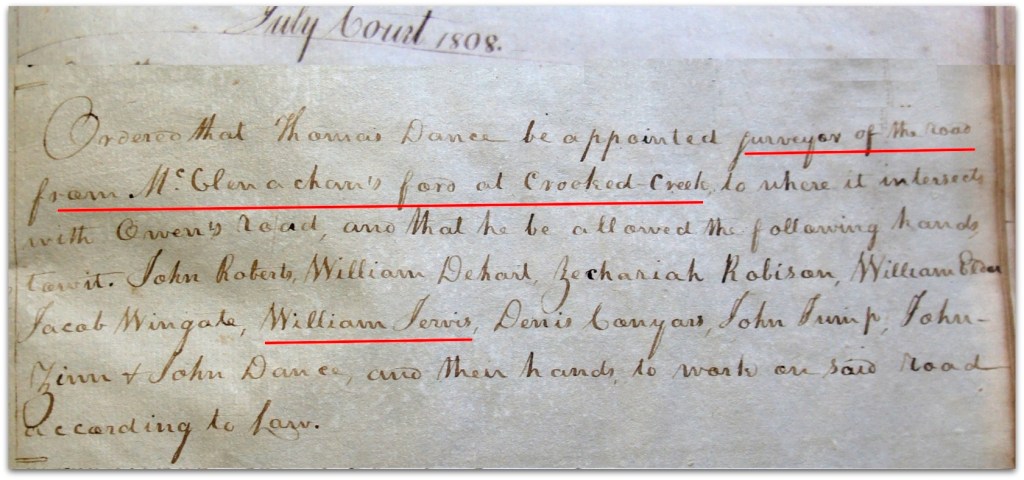 July Court 1808.
Ordered that Thomas Dance be appointed surveyor of the road
from McClenachan's ford at Crooked-Creek, to where it intersects
with Owen's road, and that he be allowed the following hands,
towit. John Roberts, William Dehart, Zechariah Robison, William Elder
Jacob Wingate, William Jervis, Denis Conyars, John Jump, John-
Zinn & John Dance, and their hands, to work on said road
according to Law.